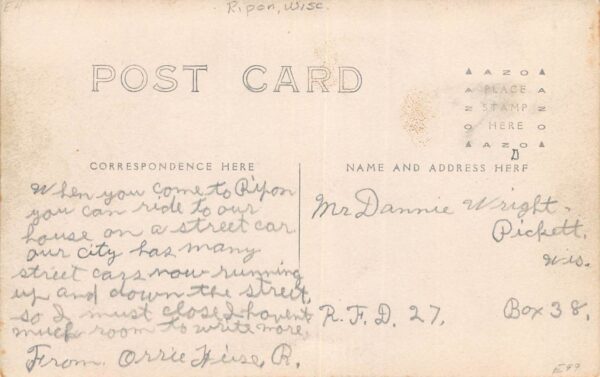 E4
Ripon, Wisc.
POST CARD
▲ A Z O ▲
▲ PLACE ▲
N STAMP N
O HERE O
▲ A Z O ▲
D
CORRESPONDENCE HERE
NAME AND ADDRESS HERE
When you come to Ripon
you can ride to our
house on a street car.
our city has many
street cars now running
up and down the street.
so I must close I havent
much room to write more.
From. Orrie Heise. R.
Mr Dannie Wright.
Pickett.
Wis.
R. F. D. 27. Box 38.
E99